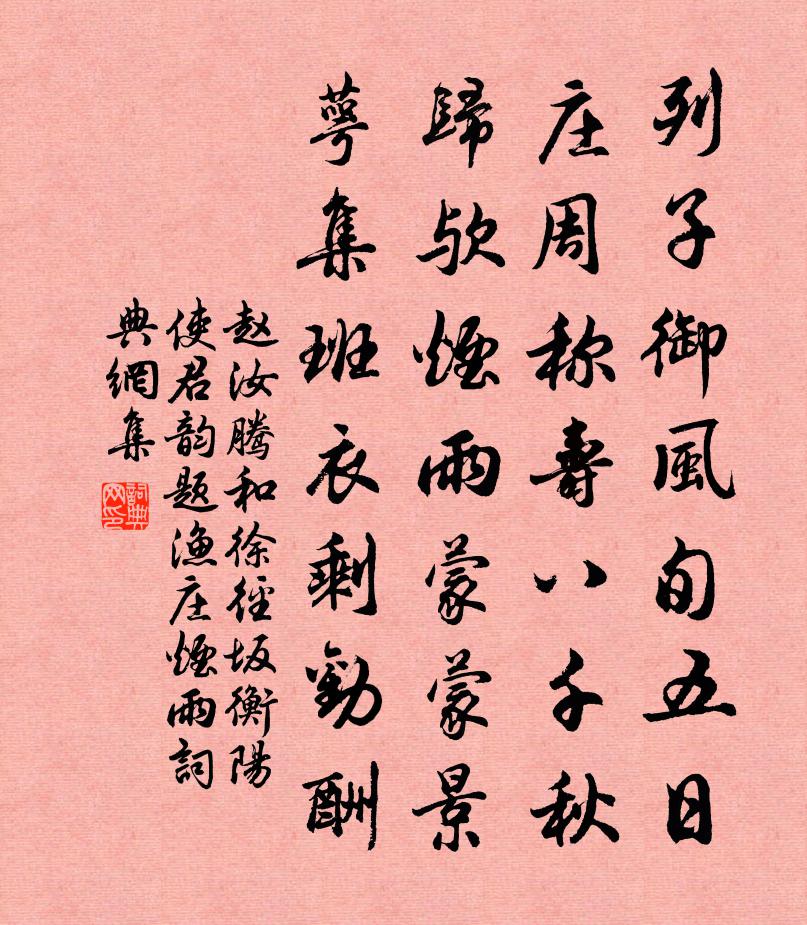 列子御風旬五日
庄周称壽八千秋
歸欤煙雨蒙蒙景
萼集班衣剩勸酬
赵汝腾和徐徑坂衡陽
使君韵题漁庄煙雨詞
典網集
詞典网印